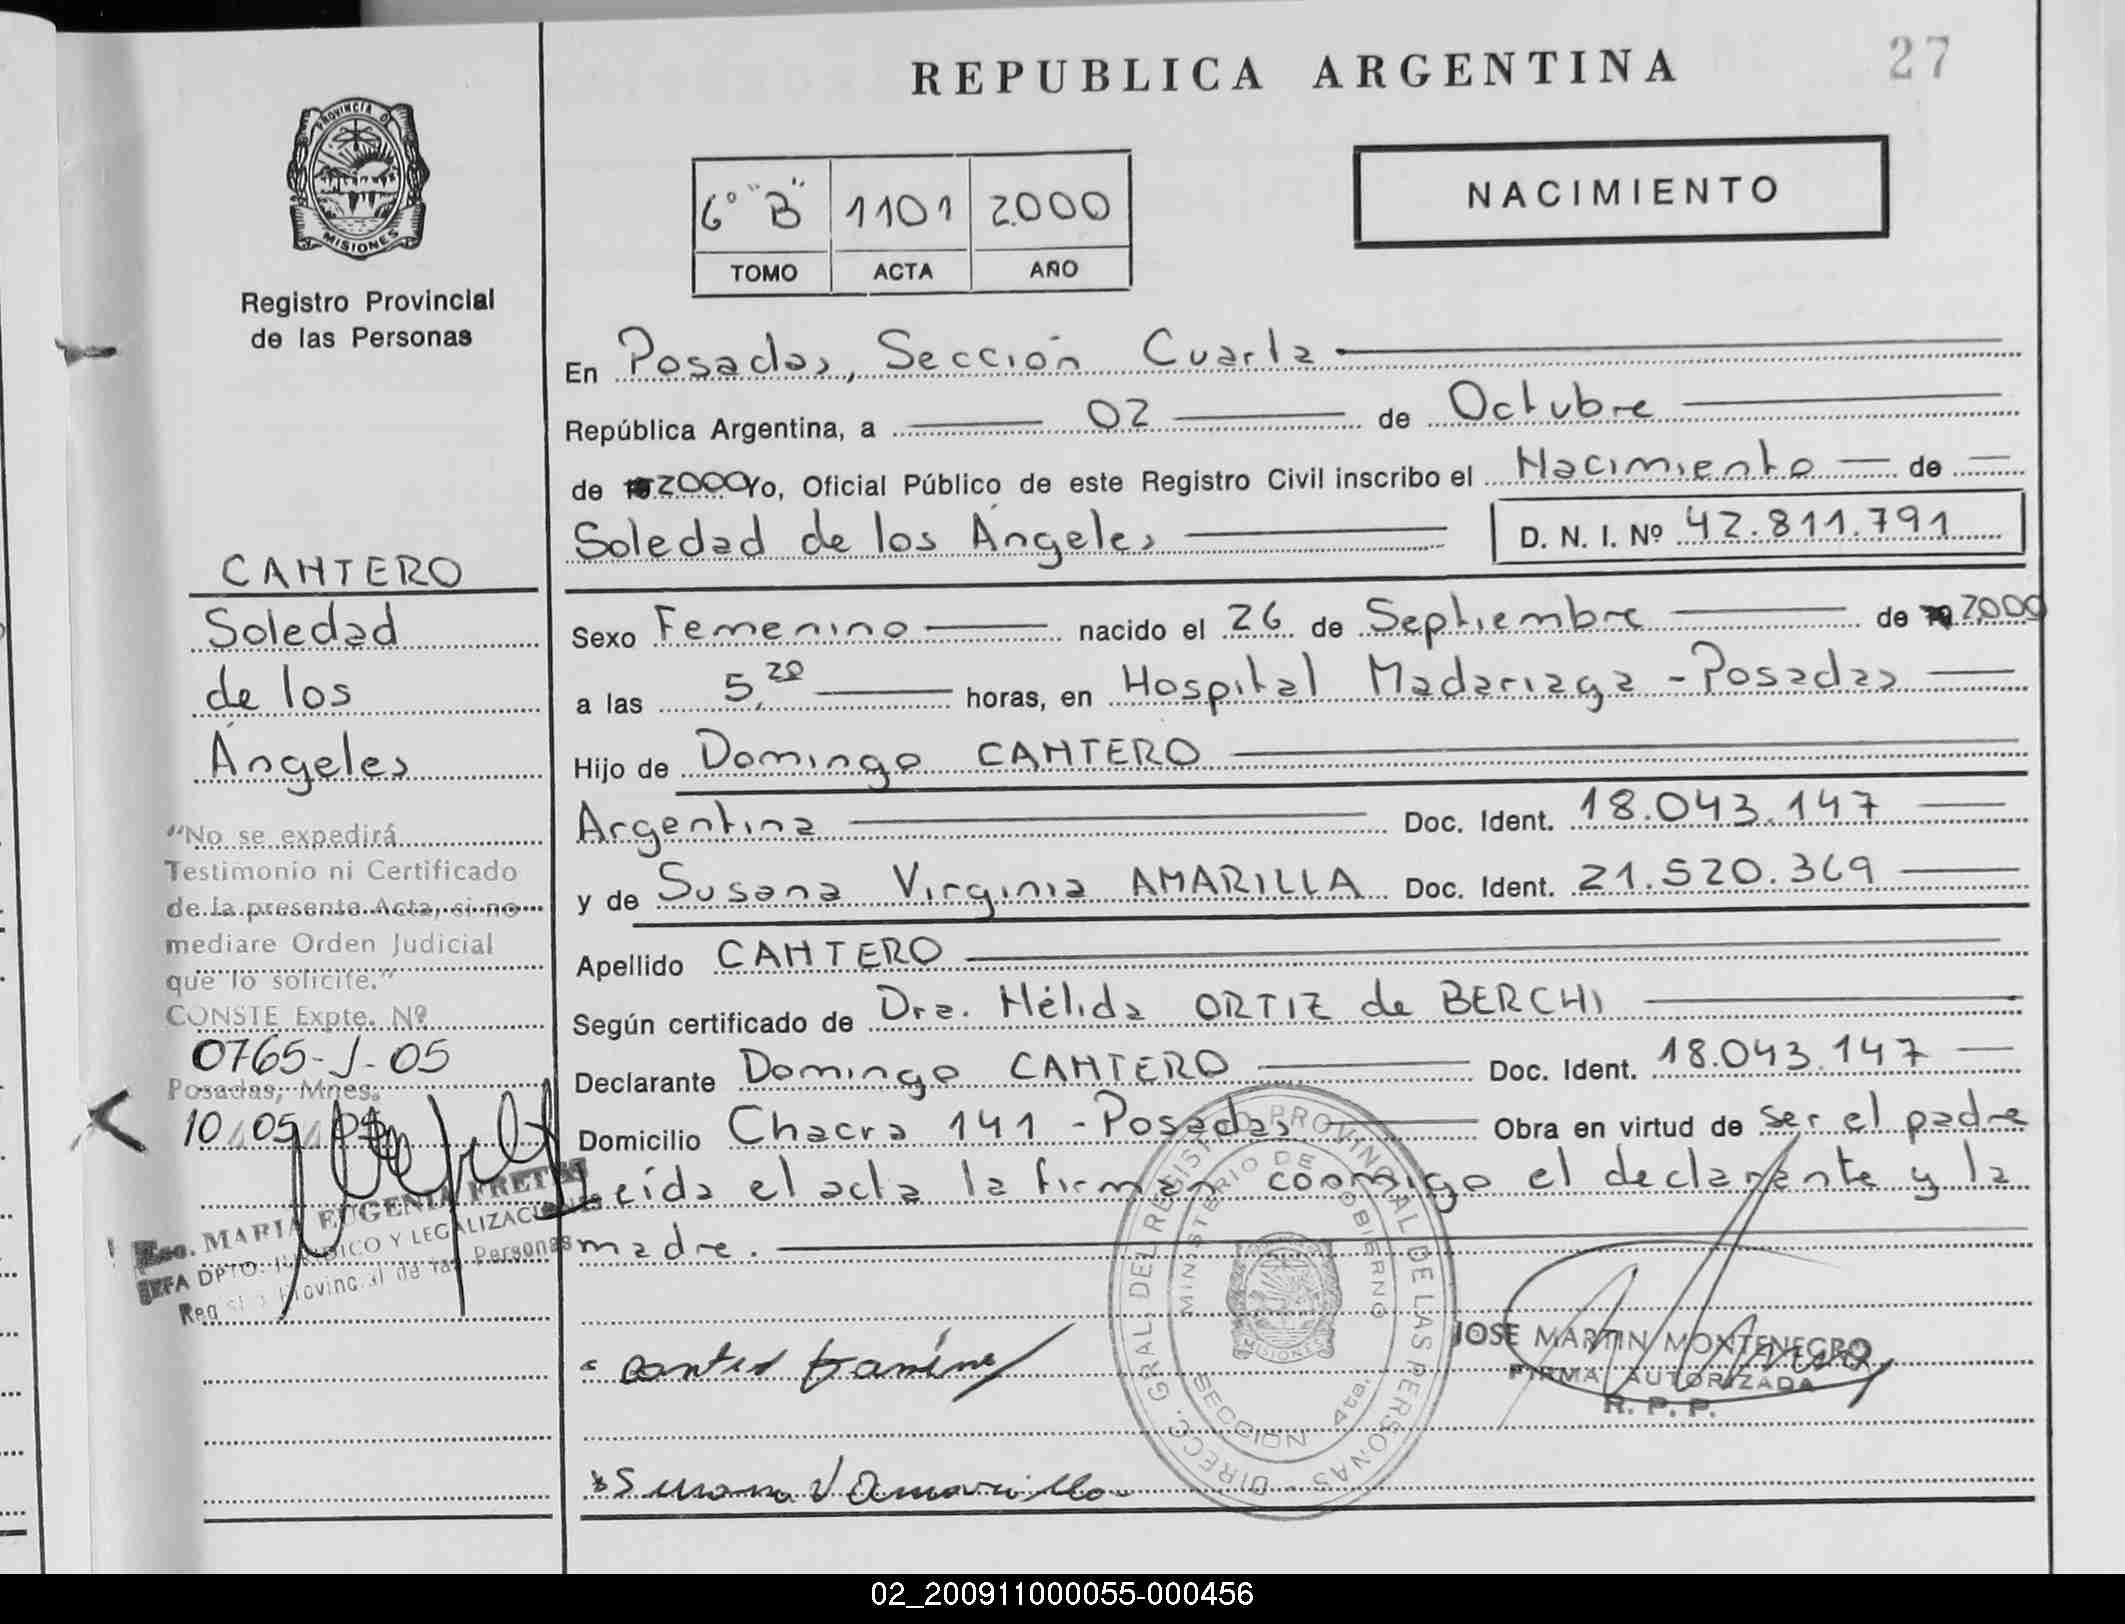 27
REPUBLICA ARGENTINA
PROVINCIA D
MISIONES
Registro Provincial
de las Personas
6° "B" 1101 2000
TOMO ACTA AÑO
NACIMIENTO
En Posadas, Sección Cuarta
República Argentina, a 02 de Octubre
de 2000 Yo, Oficial Público de este Registro Civil inscribo el Nacimiento de
Soledad de los Ángeles D. N. I. Nº 42.811.791
Sexo Femenino nacido el 26 de Septiembre de 2000
a las 5,20 horas, en Hospital Madariaga - Posadas
Hijo de Domingo CANTERO
Argentina Doc. Ident. 18.043.147
y de Susana Virginia AMARILLA Doc. Ident. 21.520.369
Apellido CANTERO
Según certificado de Dra. Nélida ORTIZ de BERCHI
Declarante Domingo CANTERO Doc. Ident. 18.043.147
Domicilio Chacra 141 - Posadas Obra en virtud de ser el padre
Leída el acta la firman conmigo el declarante y la
madre.
CANTERO
Soledad
de los
Ángeles
"No se expedirá
Testimonio ni Certificado
de la presente Acta, si no
mediare Orden Judicial
que lo solicite."
CONSTE Expte. Nº
0765-J-05
Posadas, Mnes.
10/05/05
Esc. MARIA EUGENIA FRETES
JEFA DPTO. JURIDICO Y LEGALIZACIONES
Reg Provincial de las Personas
DIRECC. GRAL. DEL REGISTRO PROVINCIAL DE LAS PERSONAS
MINISTERIO DE GOBIERNO
MISIONES
SECCION 4ta.
JOSE MARTIN MONTENEGRO
FIRMA AUTORIZADA
R. P. P.
Susana V Amarilla
02_200911000055-000456